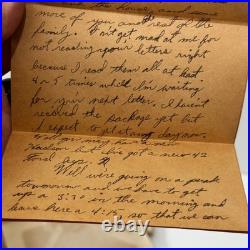 the house, and
more of you, and rest of the
family. Don't get mad at me for
not reading your letters right
because I read them all at least
4 or 5 times while I'm waiting
for your next letter. I haven't
received the package yet but
I expect to get it any day now.
may have a new
but has got a new 42
Well we're going on a parade
tomorrow and we have to get
up a 3:30 in the morning and
leave here a 4:15 so that we can